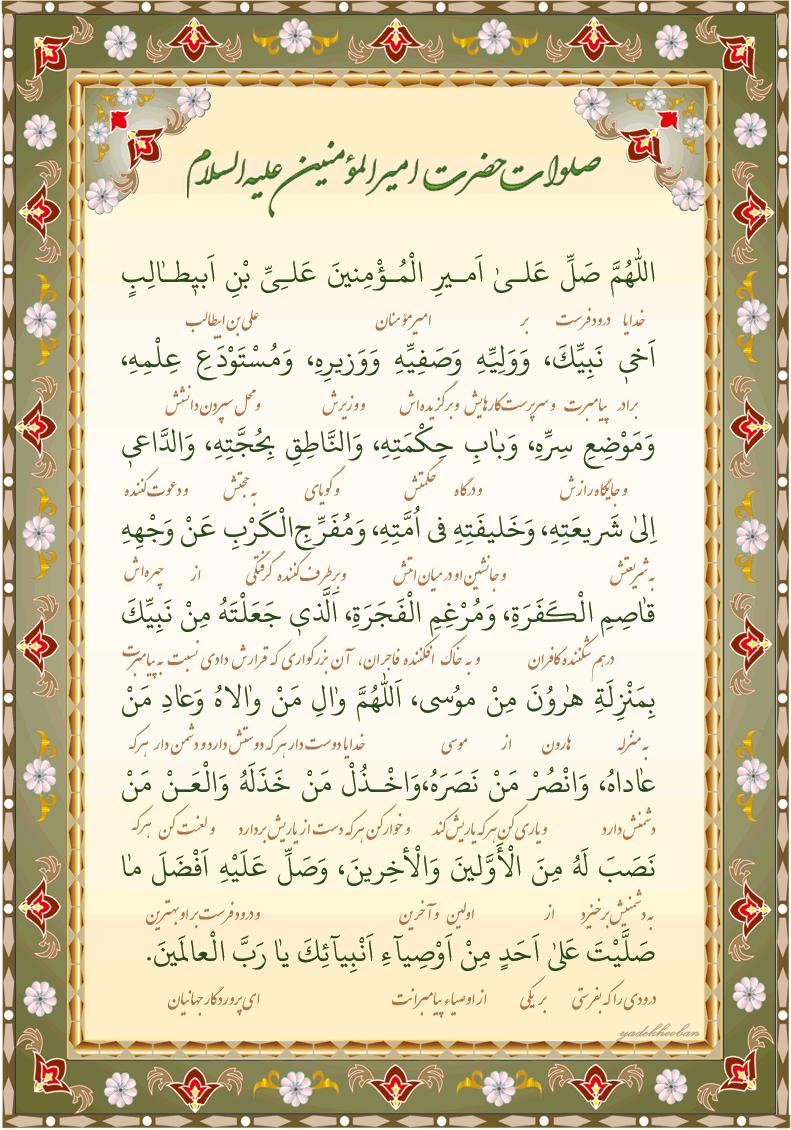 صلوات حضرت امیرالمؤمنین علیه السلام
اَللّٰهُمَّ صَلِّ عَلــیٰ اَمــیرِ الْمُــؤْمِنینَ عَلــِیِّ بْنِ اَبیطــالِبٍ
خدایا درود فرست بر امیرمؤمنان علی بن ابیطالب
اَخی نَبِیِّكَ، وَوَلِیِّهِ وَصَفِیِّهِ وَوَزیرِهِ، وَمُسْتَوْدَعِ عِلْمِهِ،
برادر پیامبرت و سرپرست کارهایش و برگزیده‌اش و وزیرش و محل سپردن دانشش
وَمَوْضِعِ سِرِّهِ، وَبابِ حِكْمَتِهِ، وَالنَّاطِقِ بِحُجَّتِهِ، وَالدَّاعی
و جایگاه رازش و درگاه حکمتش و گویای به حجتش و دعوت کننده
اِلیٰ شَریعَتِهِ، وَخَلیفَتِهِ فی اُمَّتِهِ، وَمُفَرِّجِ الْكَرْبِ عَنْ وَجْهِهِ
به شریعتش و جانشین او در میان امتش و برطرف کننده گرفتگی از چهره‌اش
قٰاصِمِ الْكَفَرَةِ، وَمُرْغِمِ الْفَجَرَةِ، اَلَّذی جَعَلْتَهُ مِنْ نَبِیِّكَ
درهم شکننده کافران و به خاک افکننده فاجران، آن بزرگواری که قرارش دادی نسبت به پیامبرت
بِمَنْزِلَةِ هٰرُونَ مِنْ مُوسی، اَللّٰهُمَّ وٰالِ مَنْ وٰالاهُ وَعٰادِ مَنْ
به منزله هارون از موسی خدایا دوست دار هرکه دوستش دارد و دشمن دار هرکه
عٰاداهُ، وَانْصُرْ مَنْ نَصَرَهُ، وَاخْــذُلْ مَنْ خَذَلَهُ وَالْعَــنْ مَنْ
دشمنش دارد و یاری کن هرکه یاریش کند و خوار کن هرکه دست از یاریش بردارد و لعنت کن هرکه
نَصَبَ لَهُ مِنَ الْأَوَّلینَ وَالْأخِرینَ، وَصَلِّ عَلَیْهِ اَفْضَلَ مٰا
به دشمنیش برخیزد از اولین و آخرین و درود فرست بر او بهترین
صَلَّیْتَ عَلیٰ اَحَدٍ مِنْ اَوْصِیآءِ اَنْبِیآئِكَ یٰا رَبَّ الْعالَمینَ.
درودی را که بفرستی بر یکی از اوصیاء پیامبرانت ای پروردگار جهانیان
yadekhooban